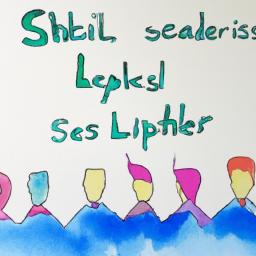 Shtil seaderis
Lepksl
Ses Lipthler